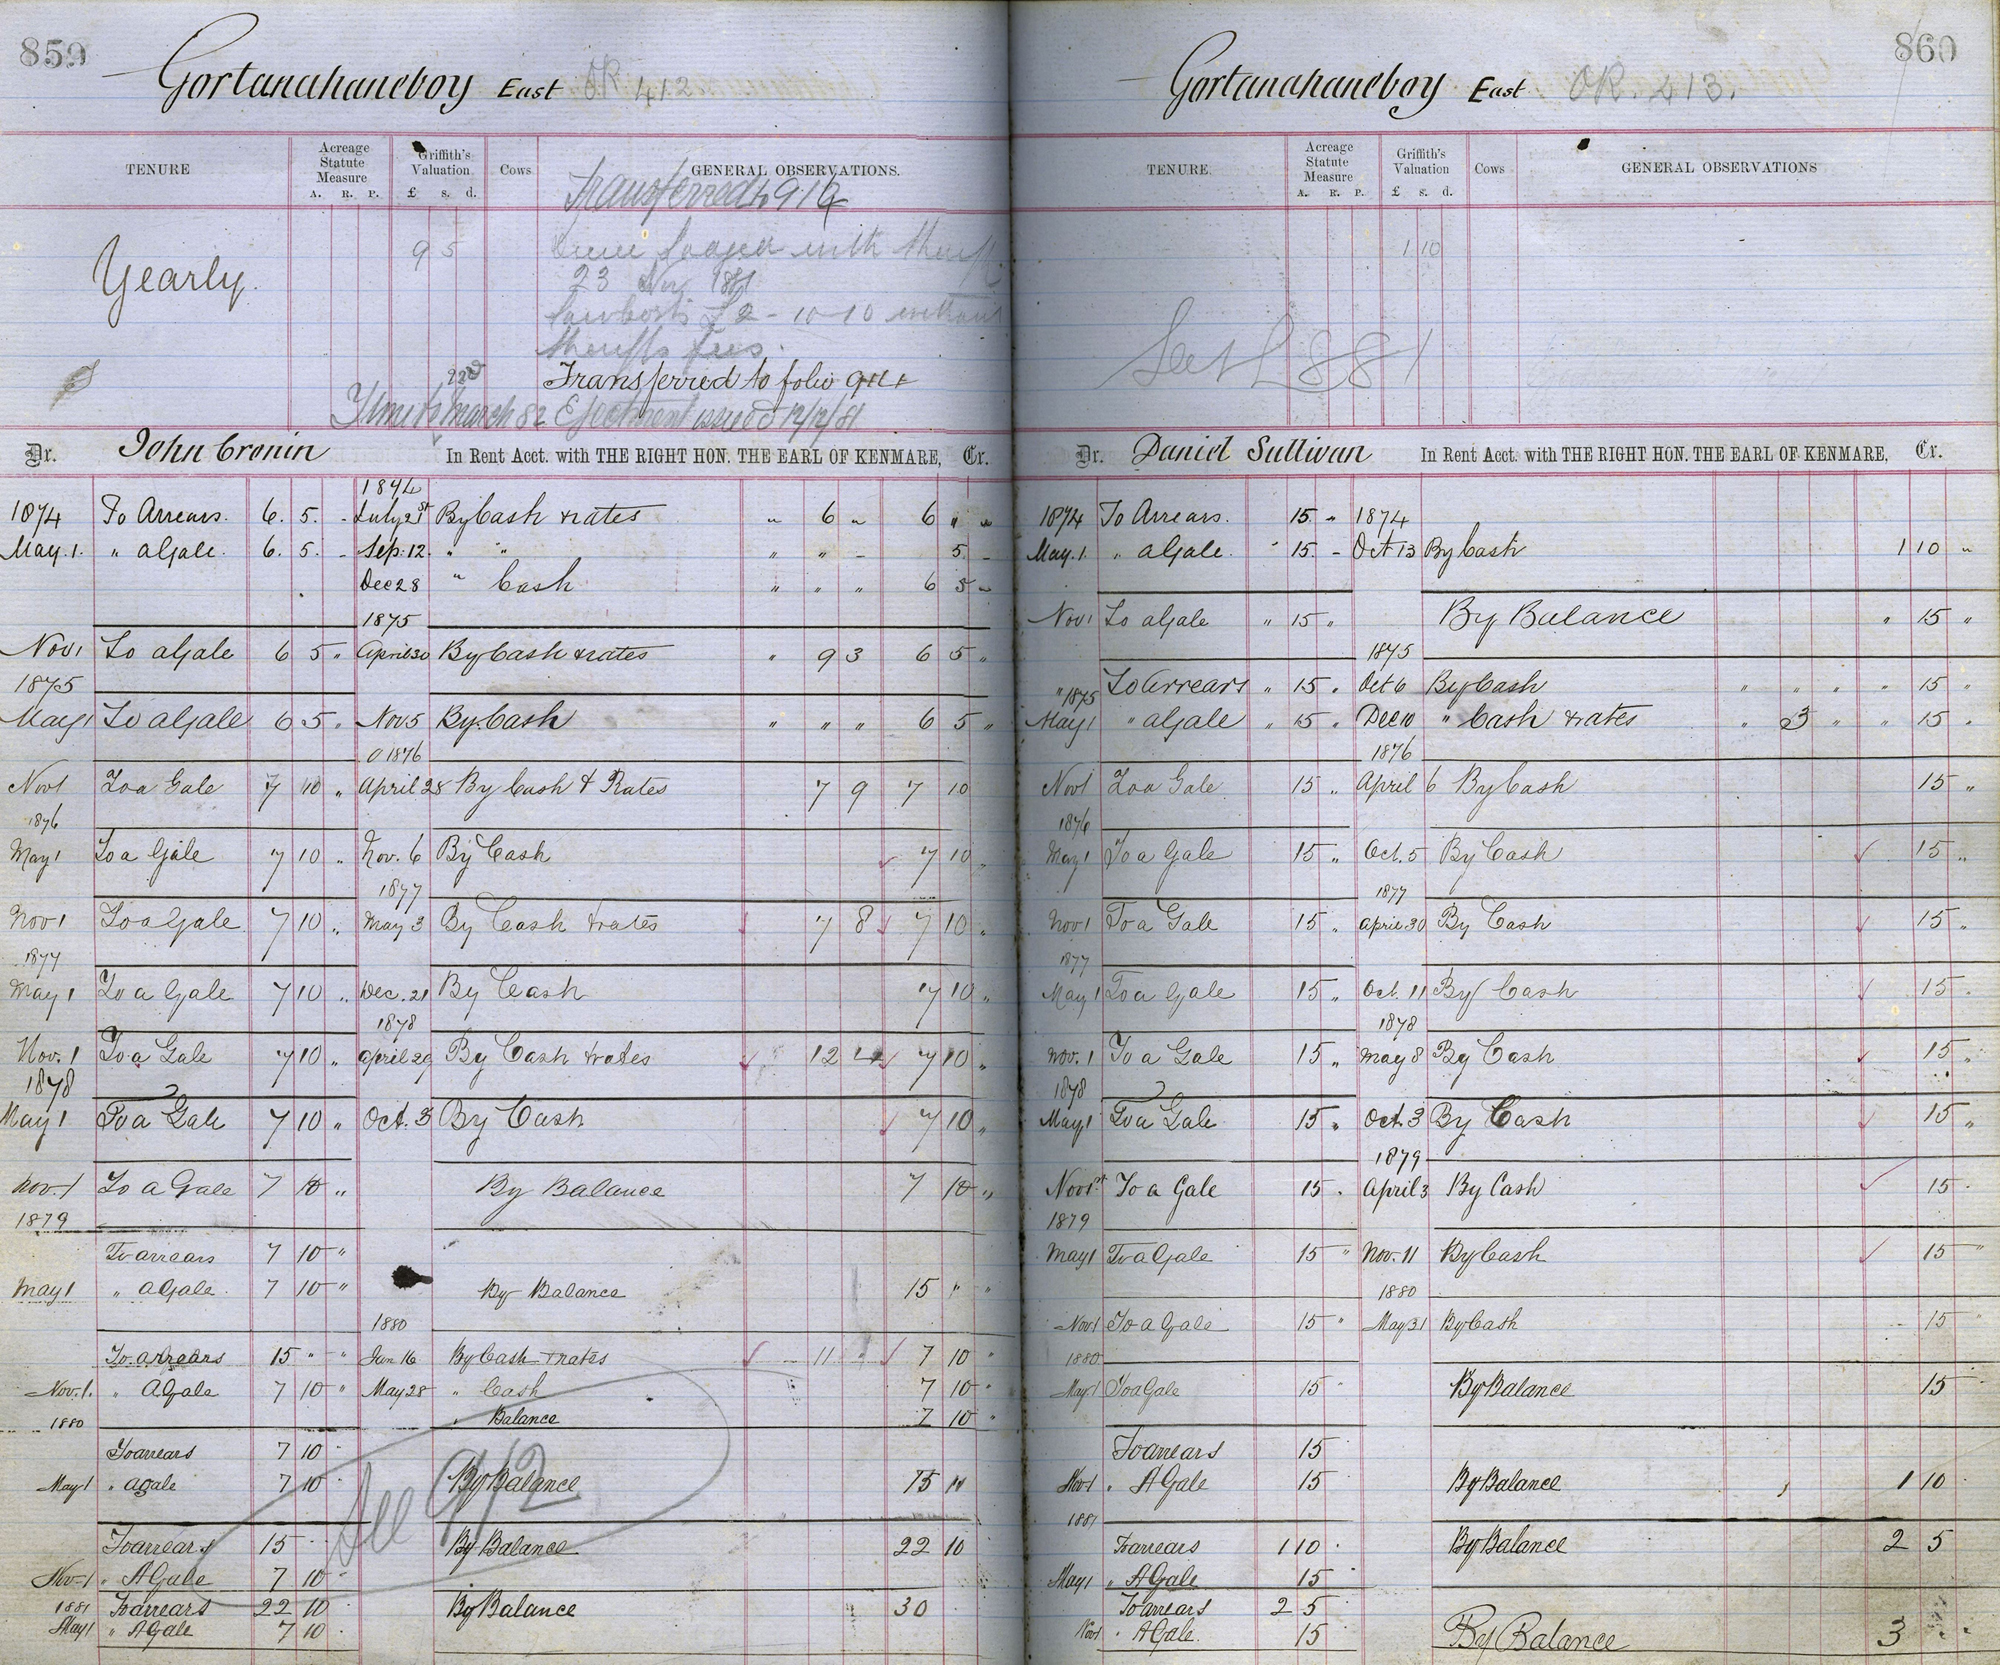 859
Gortanahaneboy East OR 412
TENURE
Acreage Statute Measure
A. R. P.
Griffith's Valuation
£ s. d.
Cows
GENERAL OBSERVATIONS.
Transferred to 912
Yearly.
9 5
lodged with Sheriff
23 Nov 1881
£2-10-10 without
Sheriffs fees.
Transferred to folio 912
22nd
March 82 Ejectment issued 12/12/81
Dr. John Cronin In Rent Acct. with THE RIGHT HON. THE EARL OF KENMARE, Cr.
1874
1874 To Arrears. 6. 5. - July 21st By Cash & rates " 6 " 6 " "
May. 1. " a Gale. 6. 5. - Sep. 12. " " " " - 5 -
Dec 28 " Cash " " " 6 5 -
1875
Nov 1 To a Gale 6 5 " April 30 By Cash & rates " 9 3 6 5 "
1875
May 1 To a Gale 6 5 " Nov 5 By Cash " " " 6 5 "
1876
Nov 1 To a Gale 7 10 " April 28 By Cash & Rates 7 9 7 10
1876
May 1 To a Gale 7 10 " Nov. 6 By Cash 7 10 "
1877
Nov 1 To a Gale 7 10 " May 3 By Cash & rates 7 8 7 10 "
1877
May 1 To a Gale 7 10 " Dec. 21 By Cash 7 10 "
1878
Nov. 1 To a Gale 7 10 " April 29 By Cash & rates 12 4 7 10 "
1878
May 1 To a Gale 7 10 " Oct. 3 By Cash 7 10 "
Nov. 1 To a Gale 7 10 " By Balance 7 10 "
1879
To arrears 7 10 "
May 1 " a Gale 7 10 " By Balance 15 " "
1880
To arrears 15 " " Jan 16 By Cash & rates 11 " 7 10 "
Nov. 1. " A Gale 7 10 " May 28 " Cash 7 10 "
1880 " Balance 7 10 "
To arrears 7 10
May 1 " a gale 7 10 By Balance 15 "
See 912
To arrears 15 By Balance 22 10
Nov 1 " A Gale 7 10
1881 To arrears 22 10 By Balance 30
May 1 " A Gale 7 10
860
Gortanahaneboy East OR. 413.
TENURE.
Acreage Statute Measure
A. R. P.
Griffith's Valuation
£ s. d.
Cows
GENERAL OBSERVATIONS
1 10
See L 881
Dr. Daniel Sullivan In Rent Acct. with THE RIGHT HON. THE EARL OF KENMARE, Cr.
1874 To Arrears. 15 " 1874
May. 1 " a Gale " 15 - Oct 13 By Cash 1 10 "
Nov 1 To a Gale " 15 " By Balance " 15 "
1875
" 1875 To Arrears " 15 " Oct 6 By Cash " " " " 15 "
May 1 " a Gale " 15 " Dec 10 " Cash & rates " 3 " " 15 "
1876
Nov 1 To a Gale 15 " April 6 By Cash 15 "
1876
May 1 To a Gale 15 " Oct. 5 By Cash 15 "
1877
Nov 1 To a Gale 15 " April 30 By Cash 15 "
1877
May 1 To a Gale 15 " Oct. 11 By Cash 15 "
1878
Nov. 1 To a Gale 15 " May 8 By Cash 15 "
1878
May 1 To a Gale 15 " Oct. 3 By Cash 15 "
1879
Nov 1st To a Gale 15 " April 3 By Cash 15 "
1879
May 1 To a Gale 15 " Nov. 11 By Cash 15 "
1880
Nov 1 To a Gale 15 " May 31 By Cash 15 "
1880
May 1 To a Gale 15 " By Balance 15
To arrears 15
Nov 1 " A Gale 15 By Balance 1 10
1881
To arrears 1 10 By Balance 2 5
May 1 " A Gale 15
To arrears 2 5
Nov 1 " A Gale. 15 By Balance 3 " "